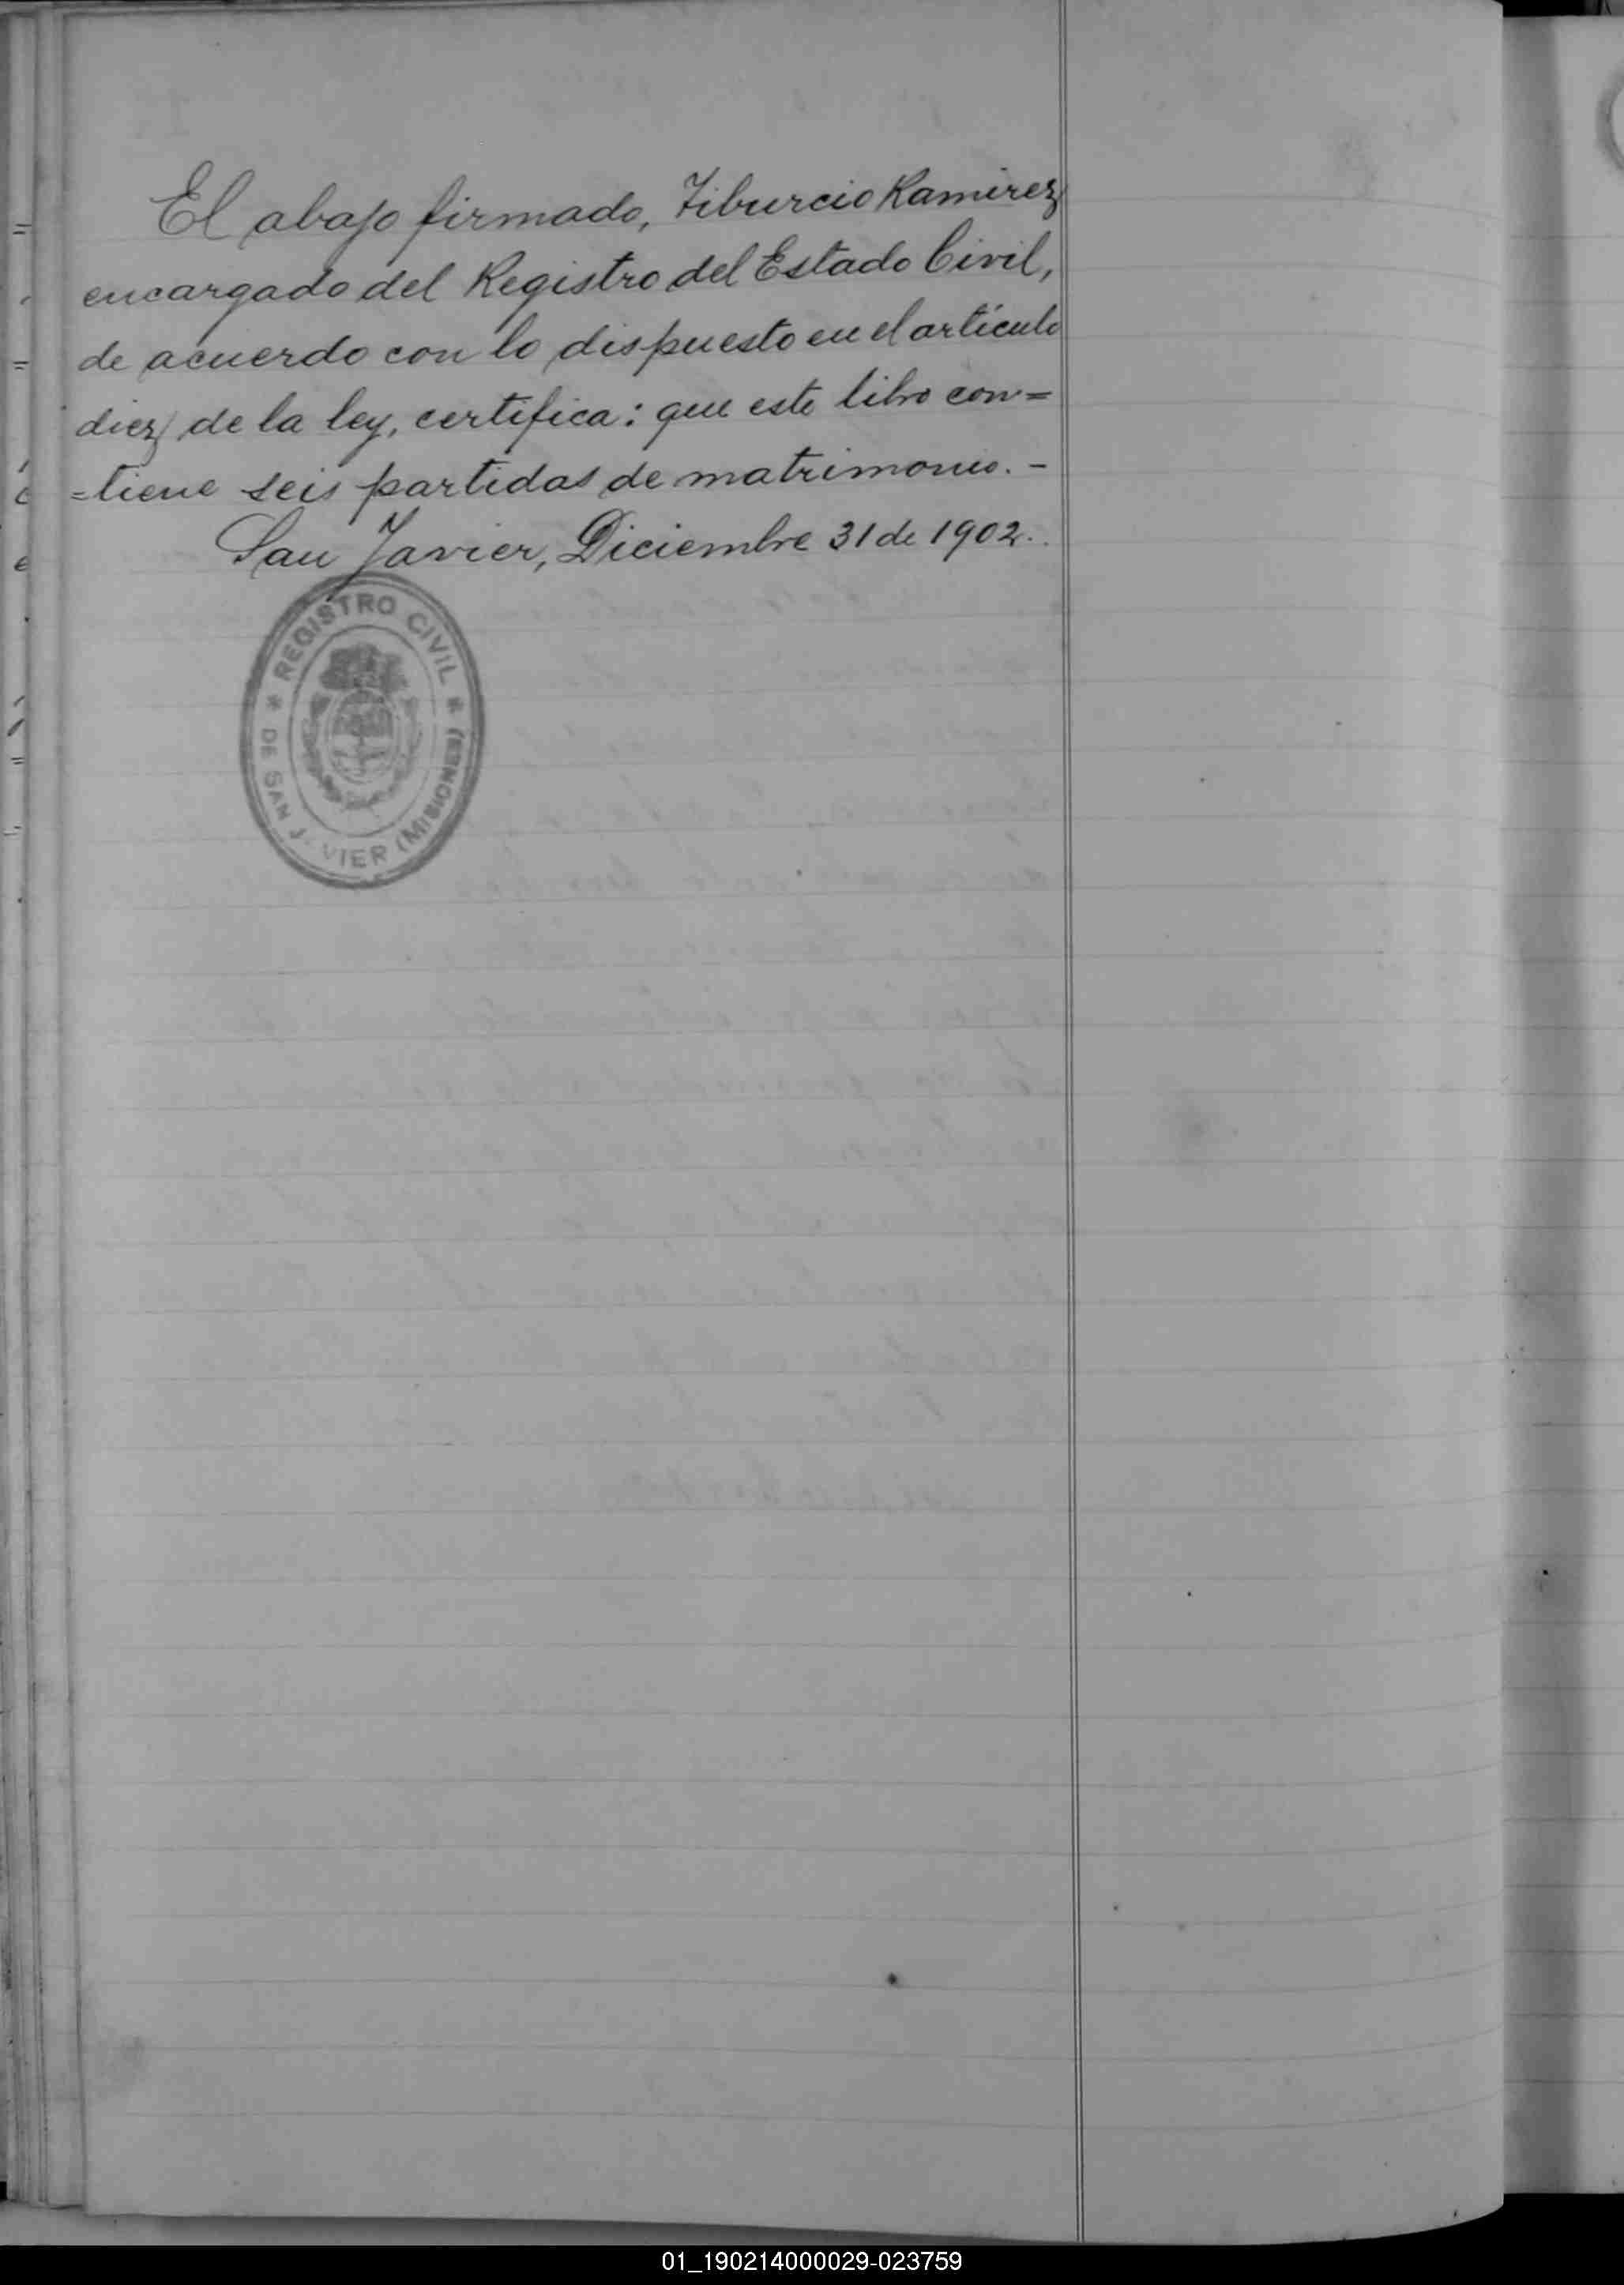 El abajo firmado, Tiburcio Ramirez
encargado del Registro del Estado Civil,
de acuerdo con lo dispuesto en el artículo
diez de la ley, certifica: que este libro con=
=tiene seis partidas de matrimonio. -
San Javier, Diciembre 31 de 1902.
* REGISTRO CIVIL *
DE SAN JAVIER (MISIONES)
01_190214000029-023759